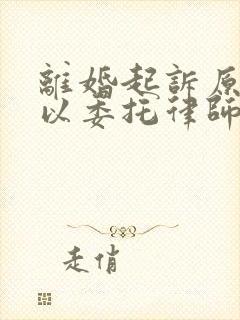 離婚起訴原
以委托律師
走俏